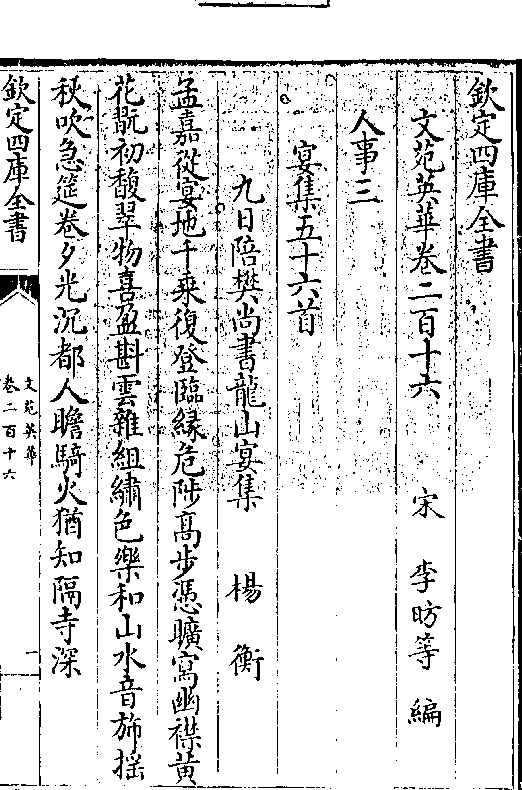 欽定四庫全書
文苑英華卷二百十六　宋　李昉等　編
人事三
宴集五十六首
九日陪樊尚書龍山宴集　楊衡
孟嘉從宴地千乘復登臨緣危陟高步憑曠寫幽襟黄
花翫初馥翠物喜盈斟雲雜組繡色樂和山水音旆揺
秋吹急筵卷夕光沉都人瞻騎火猶知隔寺深
欽定四庫全書
文苑英華
卷二百十六
一